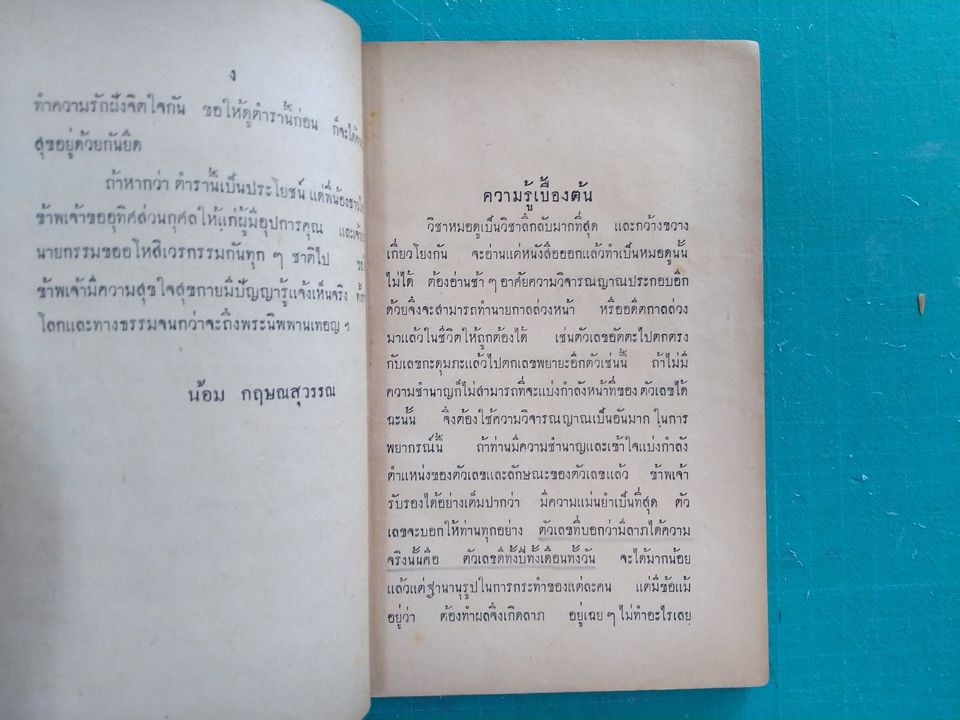 ง
ทำความรักฝังจิตใจกัน ขอให้ดูตำรานี้ก่อน ก็จะได้
สุขอยู่ด้วยกันยืด
ถ้าหากว่า ตำรานี้เป็นประโยชน์ แต่พี่น้อง
ข้าพเจ้าขออุทิศส่วนกุศลให้แก่ผู้มีอุปการคุณ และ
นายกรรมขออโหสิเวรกรรมกันทุก ๆ ชาติไป
ข้าพเจ้ามีความสุขใจสุขกายมีปัญญารู้แจ้งเห็นจริง
โลกและทางธรรมจนกว่าจะถึงพระนิพพานเทอญ ฯ
น้อม กฤษณสุวรรณ
ความรู้เบื้องต้น
วิชาหมอดูเป็นวิชาลึกลับมากที่สุด และกว้างขวาง
เกี่ยวโยงกัน จะอ่านแต่หนังสือออกแล้วทำเป็นหมอดูนั้น
ไม่ได้ ต้องอ่านช้า ๆ อาศัยความวิจารณญาณประกอบอีก
ด้วยจึงจะสามารถทำนายกาลล่วงหน้า หรืออดีตกาลล่วง
มาแล้วในชีวิตให้ถูกต้องได้ เช่นตัวเลขอัตตะไปตกตรง
กับเลขกะดุมภะแล้วไปตกเลขพยายะอีกตัวเช่นนี้ ถ้าไม่มี
ความชำนาญก็ไม่สามารถที่จะแบ่งกำลังหน้าที่ของตัวเลขได้
ฉะนั้น จึงต้องใช้ความวิจารณญาณเป็นอันมาก ในการ
พยากรณ์นี้ ถ้าท่านมีความชำนาญและเข้าใจแบ่งกำลัง
ตำแหน่งของตัวเลขและลักษณะของตัวเลขแล้ว ข้าพเจ้า
รับรองได้อย่างเต็มปากว่า มีความแม่นยำเป็นที่สุด ตัว
เลขจะบอกให้ท่านทุกอย่าง ตัวเลขที่บอกว่ามีลาภได้ความ
จริงนั้นคือ ตัวเลขดีทั้งปีทั้งเดือนทั้งวัน จะได้มากน้อย
แล้วแต่ฐานานุรูปในการกระทำของแต่ละคน แต่มีข้อแม้
อยู่ว่า ต้องทำผลจึงเกิดลาภ อยู่เฉย ๆ ไม่ทำอะไรเลย